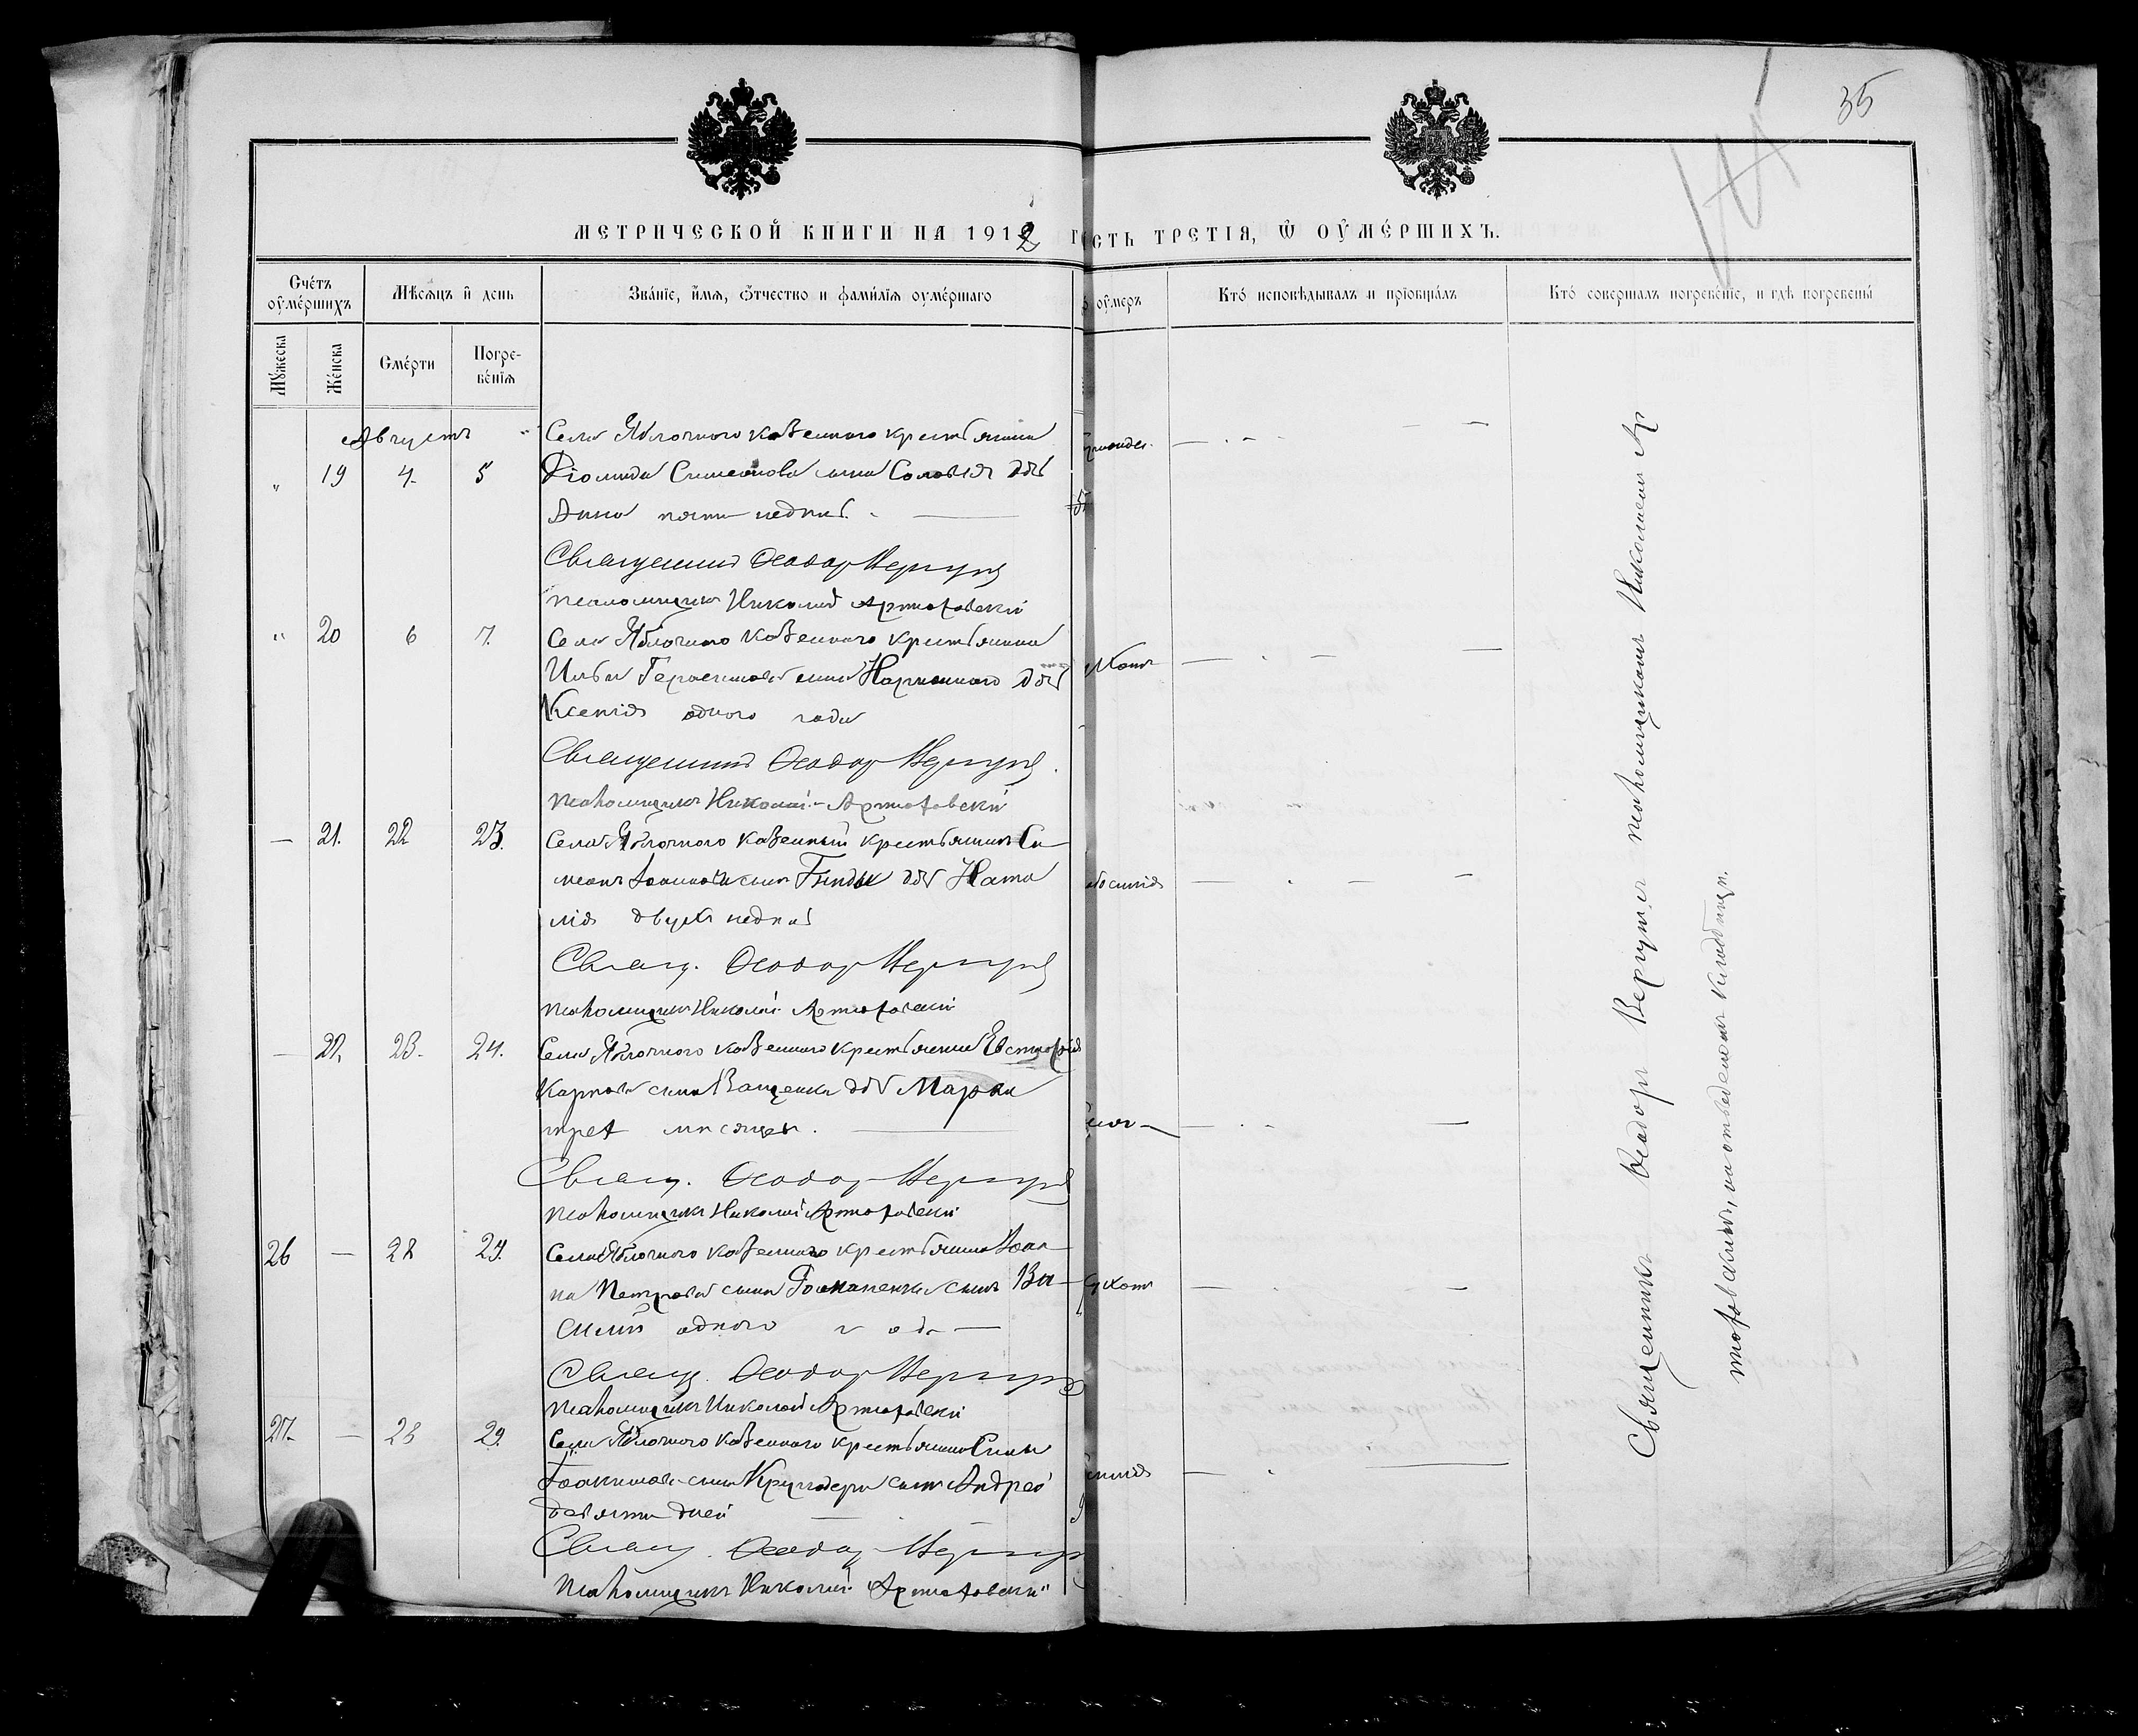 35
МЕТРИЧЕСКОЙ КНИГИ НА 1912 Г
СТЬ ТРЕТІЯ, Ѿ ОУМЕРШИХЪ.
Счетъ оумершихъ
Мѣсяцъ и день
Званіе, имя, отчество и фамилія оумершаго
оумеръ
Кто исповѣдывалъ и пріобщалъ
Кто совершалъ погребеніе, и гдѣ погребены
Мужеска
Женска
Смерти
Погребенія
Августъ
Села Яблочного казенного крестьянина
„ 19 4. 5 Діомида Симеонова сына Соловья дочь
Анна пяти недѣль. —
Священник Ѳеодор Вергунъ
псаломщикъ Николай Артюховскій
„ 20 6 7. Села Яблочного казенного крестьянина
Ильи Герасимова сына дочь
Ксенія одного года
Священник Ѳеодор Вергунъ.
псаломщикъ Николай Артюховскій
— 21. 22 23. Села Яблочного казенный крестьянинъ Си-
меонъ Іоанновъ сынъ дочь Ната
лія двухъ недѣль
Свящ. Ѳеодор Вергунъ
псаломщикъ Николай Артюховскій
— 22. 23. 24. Села Яблочного казенного крестьянина Евстафія
Карпова сына Ващенка дочь Марѳа
трех мѣсяцев. —
Свящ. Ѳеодор Вергунъ
псаломщикъ Николай Артюховскій
26 — 28 29. Села Яблочного казенного крестьянина Іоан-
на Петрова сына Романенка сынъ Ва-
силій одного года —
Свящ. Ѳеодор Вергунъ
псаломщикъ Николай Артюховскій
27. — 28 29. Села Яблочного казенного крестьянина
Іоакимова сына сынъ Андрей
девяти дней —
Свящ. Ѳеодор Вергунъ
псаломщикъ Николай Артюховскій
Священникъ Ѳеодоръ Вергунъ съ псаломщикомъ Николаемъ Ар
тюховскимъ, на отведеномъ кладбищѣ.